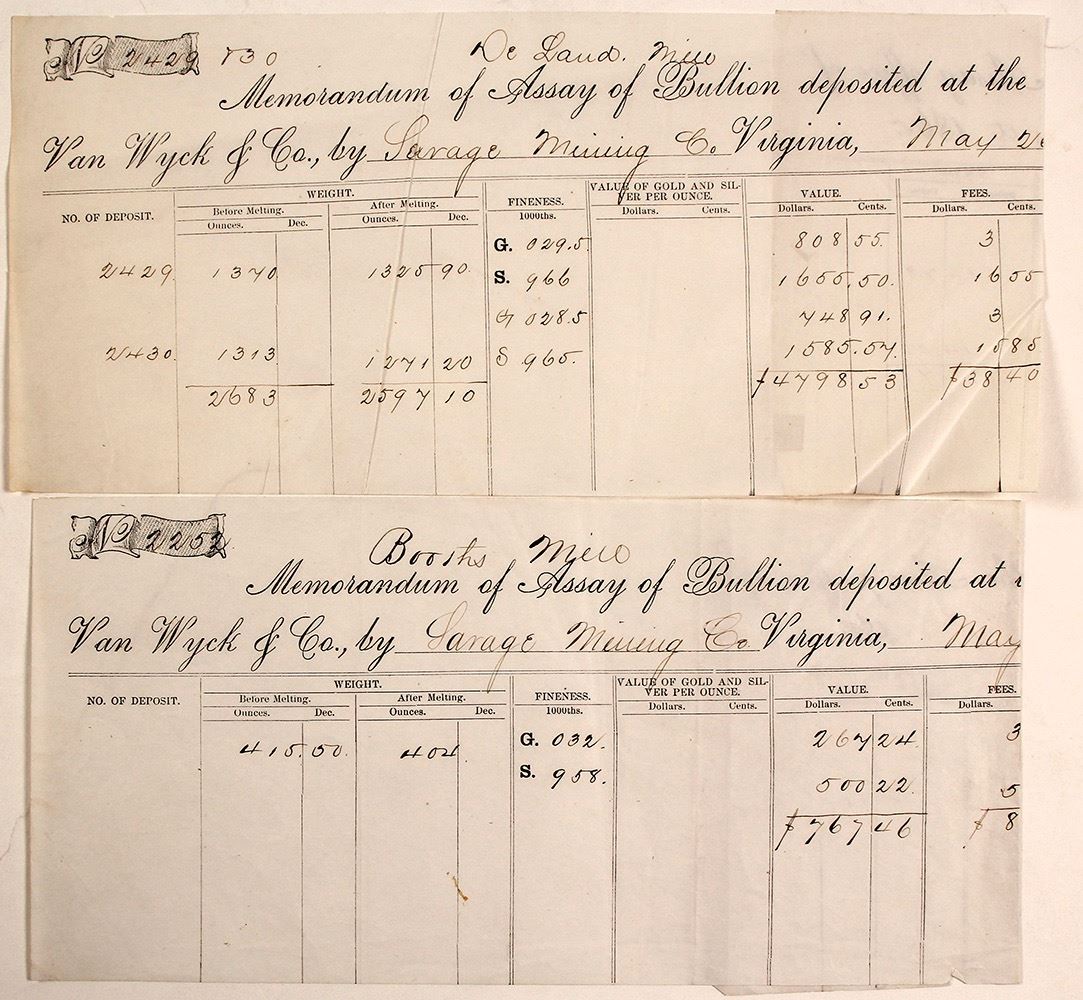 No 2429 & 30 De Land Mill
Memorandum of Assay of Bullion deposited at the
Van Wyck & Co., by Savage Mining Co Virginia, May
NO. OF DEPOSIT. WEIGHT. FINENESS. VALUE OF GOLD AND SIL-VER PER OUNCE. VALUE. FEES.
Before Melting. After Melting. 1000ths. Dollars. Cents. Dollars. Cents. Dollars. Cents.
Ounces. Dec. Ounces. Dec.
G. 029.5 808 55 3
2429 1370 1325 90 S. 966 1655.50 16 55
G 028.5 748 91 3
2430 1313 1271 20 S 965. 1585.57 15 85
2683 2597 10 $4798 53 $38 40
No 2252
Booths Mill
Memorandum of Assay of Bullion deposited at
Van Wyck & Co., by Savage Mining Co Virginia, May
NO. OF DEPOSIT. WEIGHT. FINENESS. VALUE OF GOLD AND SIL-VER PER OUNCE. VALUE. FEES.
Before Melting. After Melting. 1000ths. Dollars. Cents. Dollars. Cents. Dollars.
Ounces. Dec. Ounces. Dec.
415.50 404 G. 032. 267 24 3
S. 958. 500 22 5
$767 46 $8